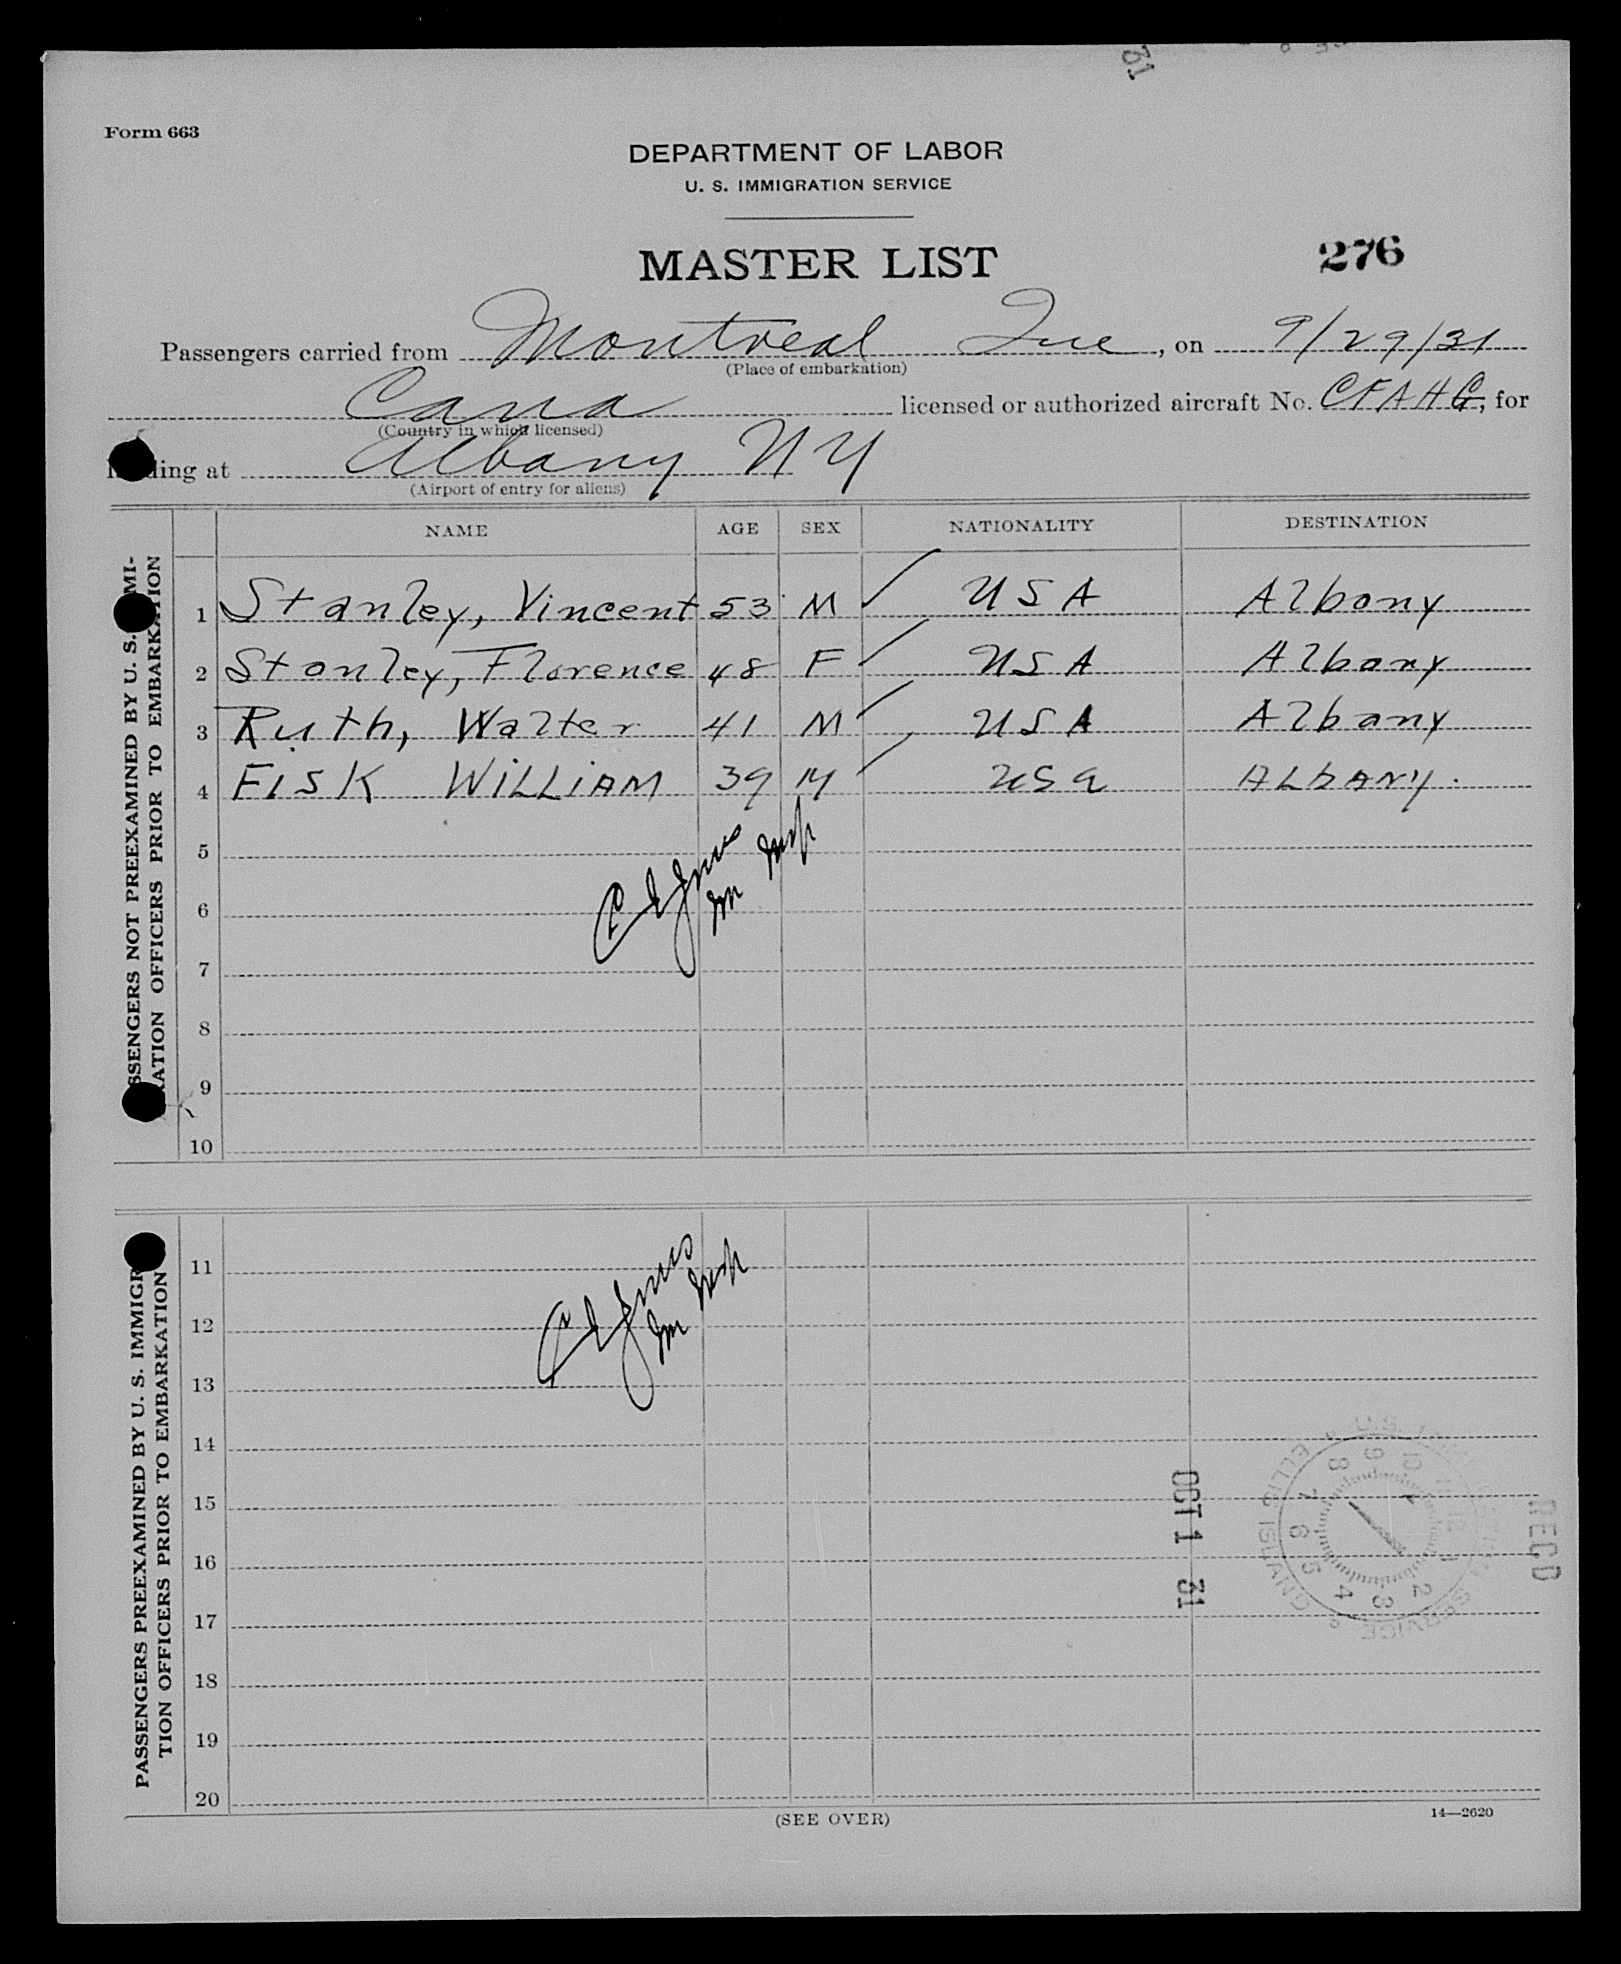 31
Form 663
DEPARTMENT OF LABOR
U. S. IMMIGRATION SERVICE
MASTER LIST
276
Passengers carried from Montreal Que, on 9/29/31
(Place of embarkation)
Cana licensed or authorized aircraft No. CFAHG, for
(Country in which licensed)
landing at Albany NY
(Airport of entry for aliens)
NAME AGE SEX NATIONALITY DESTINATION
PASSENGERS NOT PREEXAMINED BY U. S. IMMI-
GRATION OFFICERS PRIOR TO EMBARKATION
1 Stanley, Vincent 53 M ✓ USA Albany
2 Stanley, Florence 48 F ✓ USA Albany
3 Ruth, Walter 41 M ✓ USA Albany
4 FISK WILLIAM 39 M ✓ USA ALBANY.
5
6
7
8
9
10
PASSENGERS PREEXAMINED BY U. S. IMMIGRA-
TION OFFICERS PRIOR TO EMBARKATION
11
12
13
14
15
16
17
18
19
20
OCT 1 31
ELLIS ISLAND
SERVICE
RECD
(SEE OVER)
14—2620